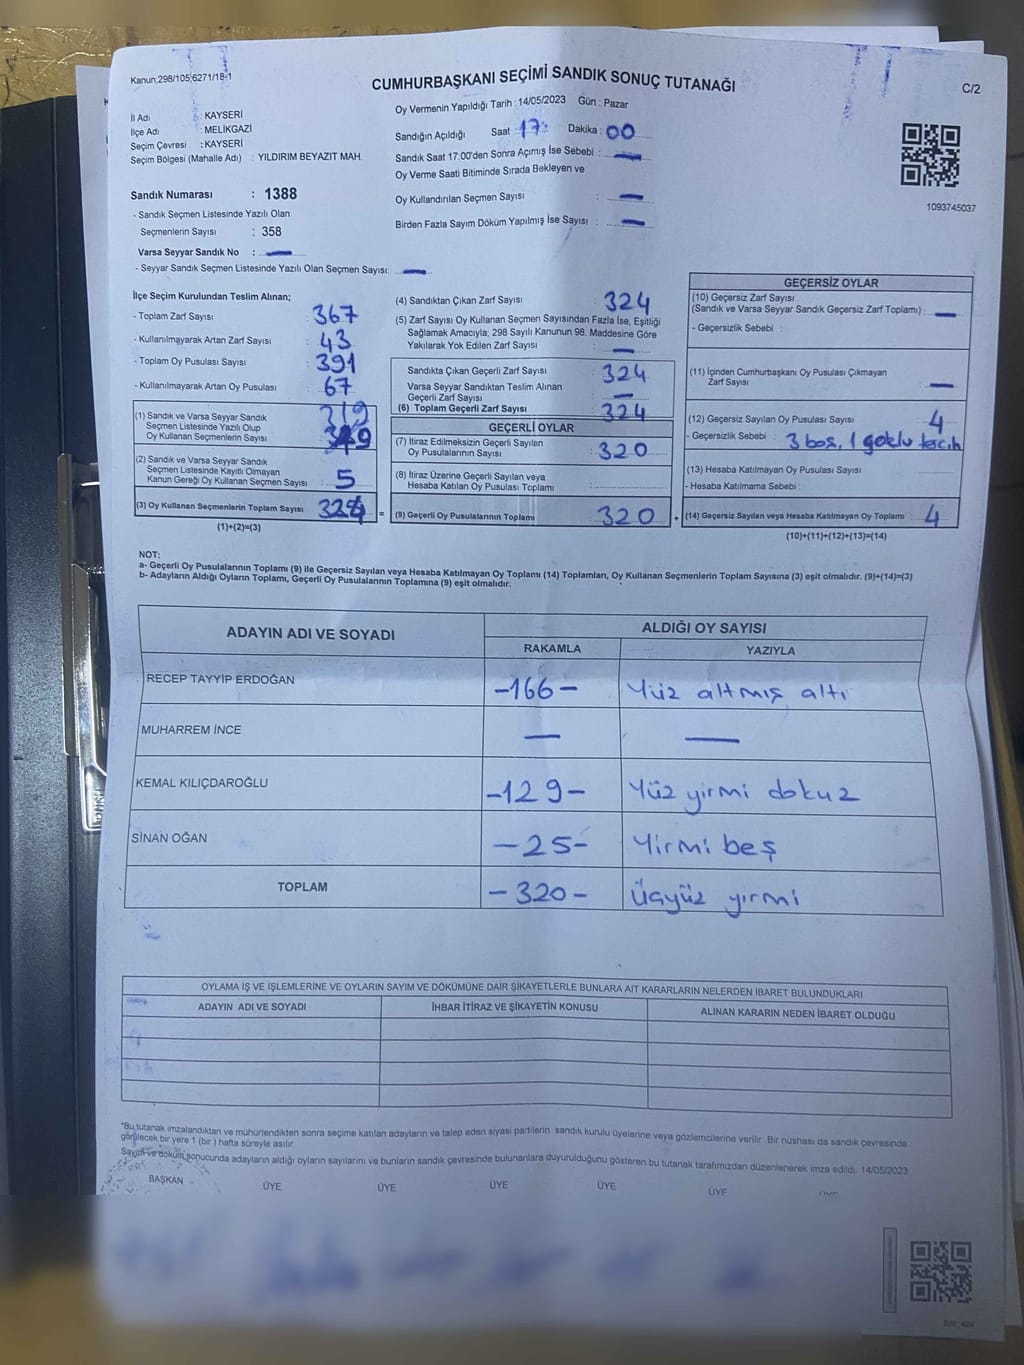 Kanun,298/105;6271/18-1
CUMHURBAŞKANI SEÇİMİ SANDIK SONUÇ TUTANAĞI
C/2
İl Adı : KAYSERİ
İlçe Adı : MELİKGAZİ
Seçim Çevresi : KAYSERİ
Seçim Bölgesi (Mahalle Adı) : YILDIRIM BEYAZIT MAH.
Oy Vermenin Yapıldığı Tarih : 14/05/2023 Gün : Pazar
Sandığın Açıldığı Saat : 17: Dakika : 00
Sandık Saat 17:00'den Sonra Açımış İse Sebebi : —
Oy Verme Saati Bitiminde Sırada Bekleyen ve
Oy Kullandırılan Seçmen Sayısı : —
Birden Fazla Sayım Döküm Yapılmış İse Sayısı : —
1093745037
Sandık Numarası : 1388
- Sandık Seçmen Listesinde Yazılı Olan
Seçmenlerin Sayısı : 358
Varsa Seyyar Sandık No : —
- Seyyar Sandık Seçmen Listesinde Yazılı Olan Seçmen Sayısı: —
İlçe Seçim Kurulundan Teslim Alınan;
- Toplam Zarf Sayısı : 367
- Kullanılmayarak Artan Zarf Sayısı : 43
- Toplam Oy Pusulası Sayısı : 391
- Kullanılmayarak Artan Oy Pusulası : 67
(1) Sandık ve Varsa Seyyar Sandık
Seçmen Listesinde Yazılı Olup
Oy Kullanan Seçmenlerin Sayısı : 319
(2) Sandık ve Varsa Seyyar Sandık
Seçmen Listesinde Kayıtlı Olmayan
Kanun Gereği Oy Kullanan Seçmen Sayısı : 5
(3) Oy Kullanan Seçmenlerin Toplam Sayısı : 324 =
(1)+(2)=(3)
(4) Sandıktan Çıkan Zarf Sayısı : 324
(5) Zarf Sayısı Oy Kullanan Seçmen Sayısından Fazla İse, Eşitliği
Sağlamak Amacıyla; 298 Sayılı Kanunun 98. Maddesine Göre
Yakılarak Yok Edilen Zarf Sayısı : —
Sandıkta Çıkan Geçerli Zarf Sayısı : 324
Varsa Seyyar Sandıktan Teslim Alınan
Geçerli Zarf Sayısı : —
(6) Toplam Geçerli Zarf Sayısı : 324
GEÇERLİ OYLAR
(7) İtiraz Edilmeksizin Geçerli Sayılan
Oy Pusulalarının Sayısı : 320
(8) İtiraz Üzerine Geçerli Sayılan veya
Hesaba Katılan Oy Pusulası Toplamı :
(9) Geçerli Oy Pusulalarının Toplamı : 320 +
GEÇERSİZ OYLAR
(10) Geçersiz Zarf Sayısı
(Sandık ve Varsa Seyyar Sandık Geçersiz Zarf Toplamı) : —
- Geçersizlik Sebebi :
(11) İçinden Cumhurbaşkanı Oy Pusulası Çıkmayan
Zarf Sayısı : —
(12) Geçersiz Sayılan Oy Pusulası Sayısı : 4
- Geçersizlik Sebebi : 3 boş, 1 çoklu tercih
(13) Hesaba Katılmayan Oy Pusulası Sayısı
- Hesaba Katılmama Sebebi :
(14) Geçersiz Sayılan veya Hesaba Katılmayan Oy Toplamı : 4
(10)+(11)+(12)+(13)=(14)
NOT:
a- Geçerli Oy Pusulalarının Toplamı (9) ile Geçersiz Sayılan veya Hesaba Katılmayan Oy Toplamı (14) Toplamları, Oy Kullanan Seçmenlerin Toplam Sayısına (3) eşit olmalıdır. (9)+(14)=(3)
b- Adayların Aldığı Oyların Toplamı, Geçerli Oy Pusulalarının Toplamına (9) eşit olmalıdır.
ADAYIN ADI VE SOYADI
ALDIĞI OY SAYISI
RAKAMLA YAZIYLA
RECEP TAYYİP ERDOĞAN -166- Yüz altmış altı
MUHARREM İNCE — —
KEMAL KILIÇDAROĞLU -129- Yüz yirmi dokuz
SİNAN OĞAN -25- Yirmi beş
TOPLAM -320- Üçyüz yirmi
OYLAMA İŞ VE İŞLEMLERİNE VE OYLARIN SAYIM VE DÖKÜMÜNE DAİR ŞİKAYETLERLE BUNLARA AİT KARARLARIN NELERDEN İBARET BULUNDUKLARI
ADAYIN ADI VE SOYADI İHBAR İTİRAZ VE ŞİKAYETİN KONUSU ALINAN KARARIN NEDEN İBARET OLDUĞU
*Bu tutanak imzalandıktan ve mühürlendikten sonra seçime katılan adayların ve talep eden siyasi partilerin sandık kurulu üyelerine veya gözlemcilerine verilir. Bir nüshası da sandık çevresinde
görülecek bir yere 1 (bir) hafta süreyle asılır.
Sayım ve döküm sonucunda adayların aldığı oyların sayılarını ve bunların sandık çevresinde bulunanlara duyurulduğunu gösteren bu tutanak tarafımızdan düzenlenerek imza edildi. 14/05/2023
BAŞKAN ÜYE ÜYE ÜYE ÜYE ÜYE